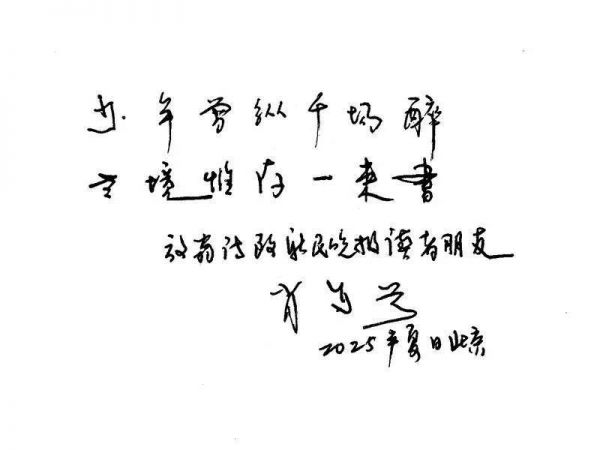 少年曾纵千场醉
老境惟存一束书
放翁诗致新民晚报读者朋友
肖复兴
2025年夏日北京